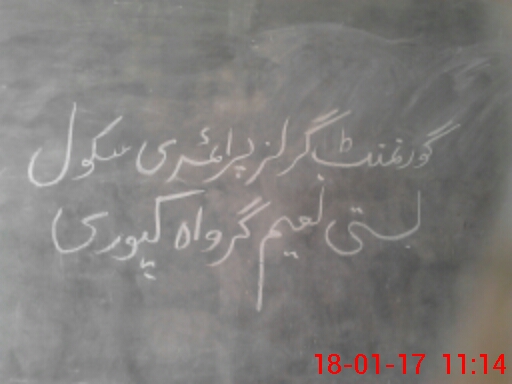 گورنمنٹ گرلز پرائمری سکول
بستی نعیم گرواہ کپوری
18-01-17 11:14